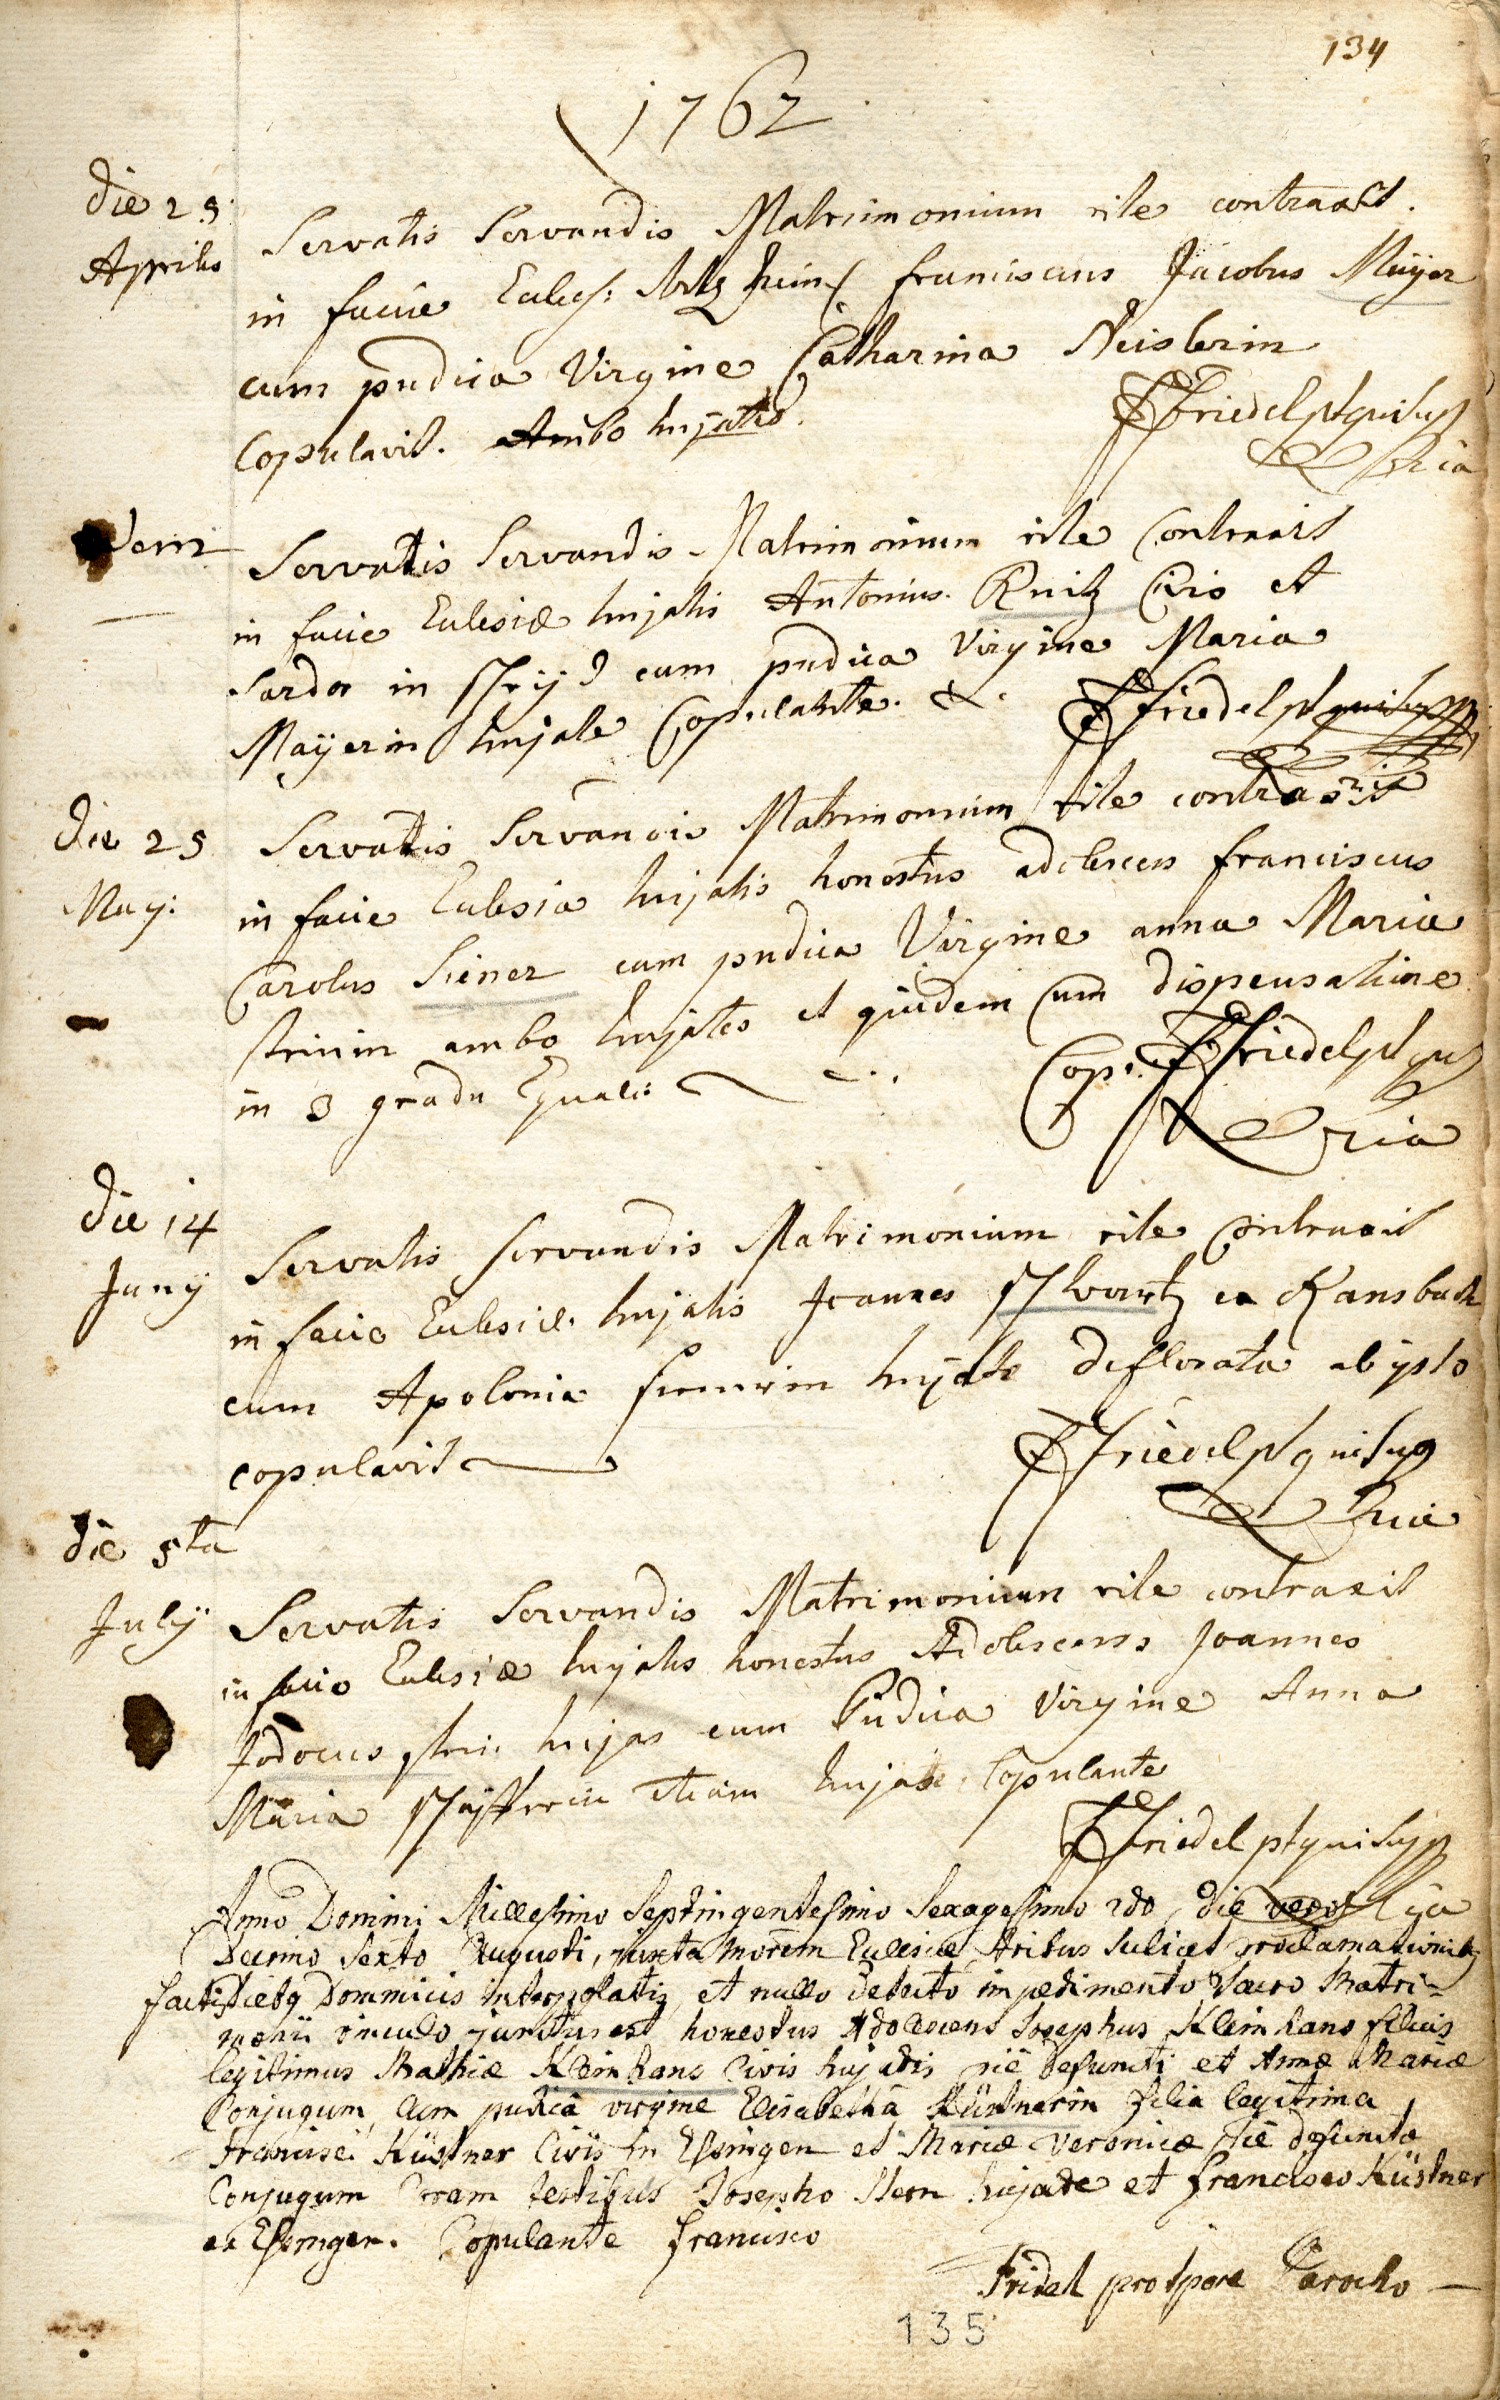 134
1762
die 25
Aprilis
Servatis Servandis Matrimonium rite contraxit
in facie Eccles: franciscus Jacobus Mayer
cum pudica Virgine Catharina Neisterin
Copulavit. Ambo hujates.
FFriedel
idem
Servatis Servandis Matrimonium rite Contraxit
in facie Eclesiæ hujatis Antonius. Civis et
in cum pudica Virgine Maria
Mayerin hujate Copulante. FFriedel
die 25
May:
Servatis Servandis Matrimonium rite contraxit
in facie Eclesiæ hujatis honestus adolescens franciscus
Carolus cum pudica Virgine anna Maria
ambo hujates et quidem Cum dispensatione
in 3 gradu Equali
Cop: FFriedel
die 14
Juny
Servatis servandis Matrimonium rite Contraxit
in facie Eclesiæ hujatis Joannes ex Ransbach
cum Apolonia hujate deflorata ab ipso
copulavit
FFriedel
die 5ta
July
Servatis Servandis Matrimonium rite contraxit
in facie Eclesiæ hujatis honestus Adolescens Joannes
Jodocus hujas cum Pudica Virgine Anna
Maria etiam hujate Copulante
FFriedel
Anno Domini Millesimo Septingentesimo Sexagesimo 2do, die
Decimo Sexto Augusti, juxta morem Eclesiæ, tribus scilicet proclamationib9
factis Dieb9 Dominicis interpolatis, et nullo detecto impedimento Sacro Matri-
monii vinculo junctus est honestus Adolescens Josephus Kleinhans filius
legitimus Mathiæ Kleinhans Civis hujatis piè defuncti et Annæ Mariæ
Conjugum, Cum pudicâ virgine Elisabethâ Küstnerin filia legitima
Francisci Küstner Civis in Essingen et Mariæ Veronicæ piè defunctæ
Conjugum Coram testibus Josepho Stern hujate et francisco Küstner
ex Essingen. Copulante francisco
Fridel pro tpore Parocho —
135